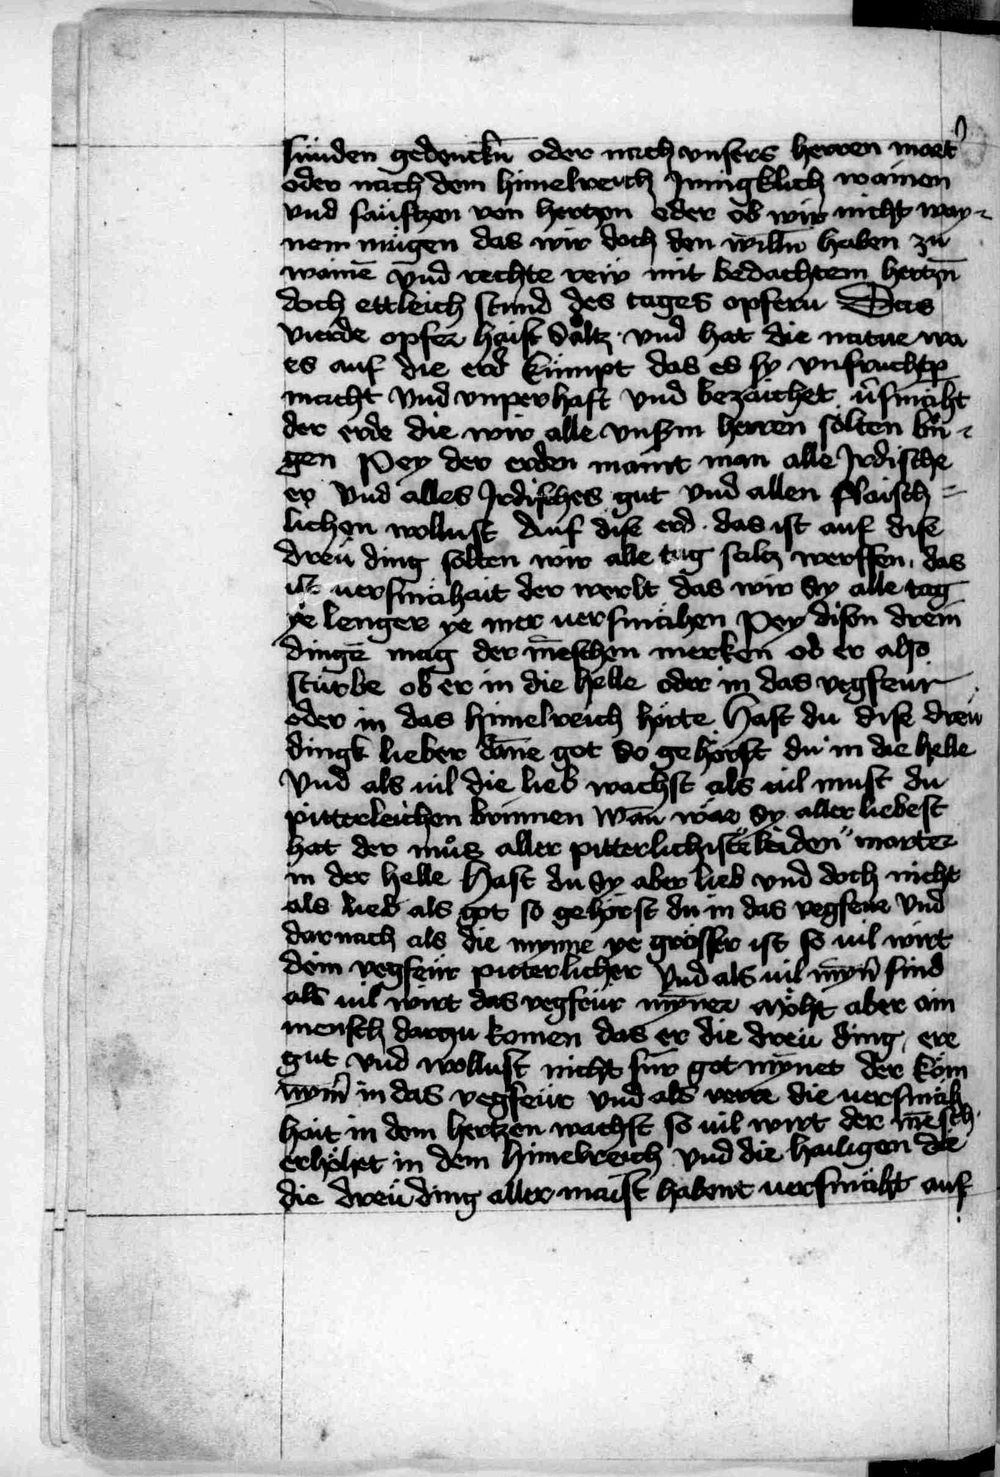 sünden gedenckn̄ oder nach unsers herren mort̉
oder nach dem himelreich Jnnigklich wainen
vnd säuftzen von hertzen oder ob wir nicht way-
nem mügen das wir doch den willn̄ haben zu
wainē vnd rechte rew mit bedachtem hertzn̄
doch ettleich stund des tages opfern Das
vierde opfer haist Saltz · vnd hat die natur wa
es auf die erd kumpt das es sy vnfruchtper
macht vnd vnperhaft vnd bezaichet v̉smäht
der erde die wir alle vnserm herren sölten brin-
gen Pey der erden maint man alle Jrdische
er vnd alles Jrdisches gut vnd allen flaisch=
lichen wollust Auf dise erd · das ist auf dise
dreü ding sölten wir alle tag saltz werffen · das
ist uersmähait der werlt das wir sy alle tag
ye lenger ye mer uersmähen Pey disen drein
dingē mag der mēschen merken ob er also
stürbe ob er in die helle oder in das vegfeür
oder in das himelreich hörte Hast du dise dreü
dingk lieber dāne got So gehörst du in die helle
Vnd als uil die lieb wachst als uil must du
pitterleichen brinnen Wan̄ wär sy aller liebest
hat der muͦs aller pitterlichiste leiden marter
in der helle Hast du sy aber lieb vnd doch nicht
als lieb als got so gehörst du in das vegfeur Vnd
darnach als die mynne ye grösser ist so uil wirt
dein vegfeür pitterlicher Vnd als uil myn̄ sind
als uil wirt das vegfeür mynner Möht aber ain
mensch darzu komen das er die dreü ding, ere
gut vnd wollust nicht für got mynet der köm
nym̄ in das vegfeür Vnd als verre die uersmäh
hait in dem hertzen wachst so uil wirt der mēsch
erhöhet in dem himelreich Vnd die hailigen die
die dreü ding aller maist habent uersmäht auf